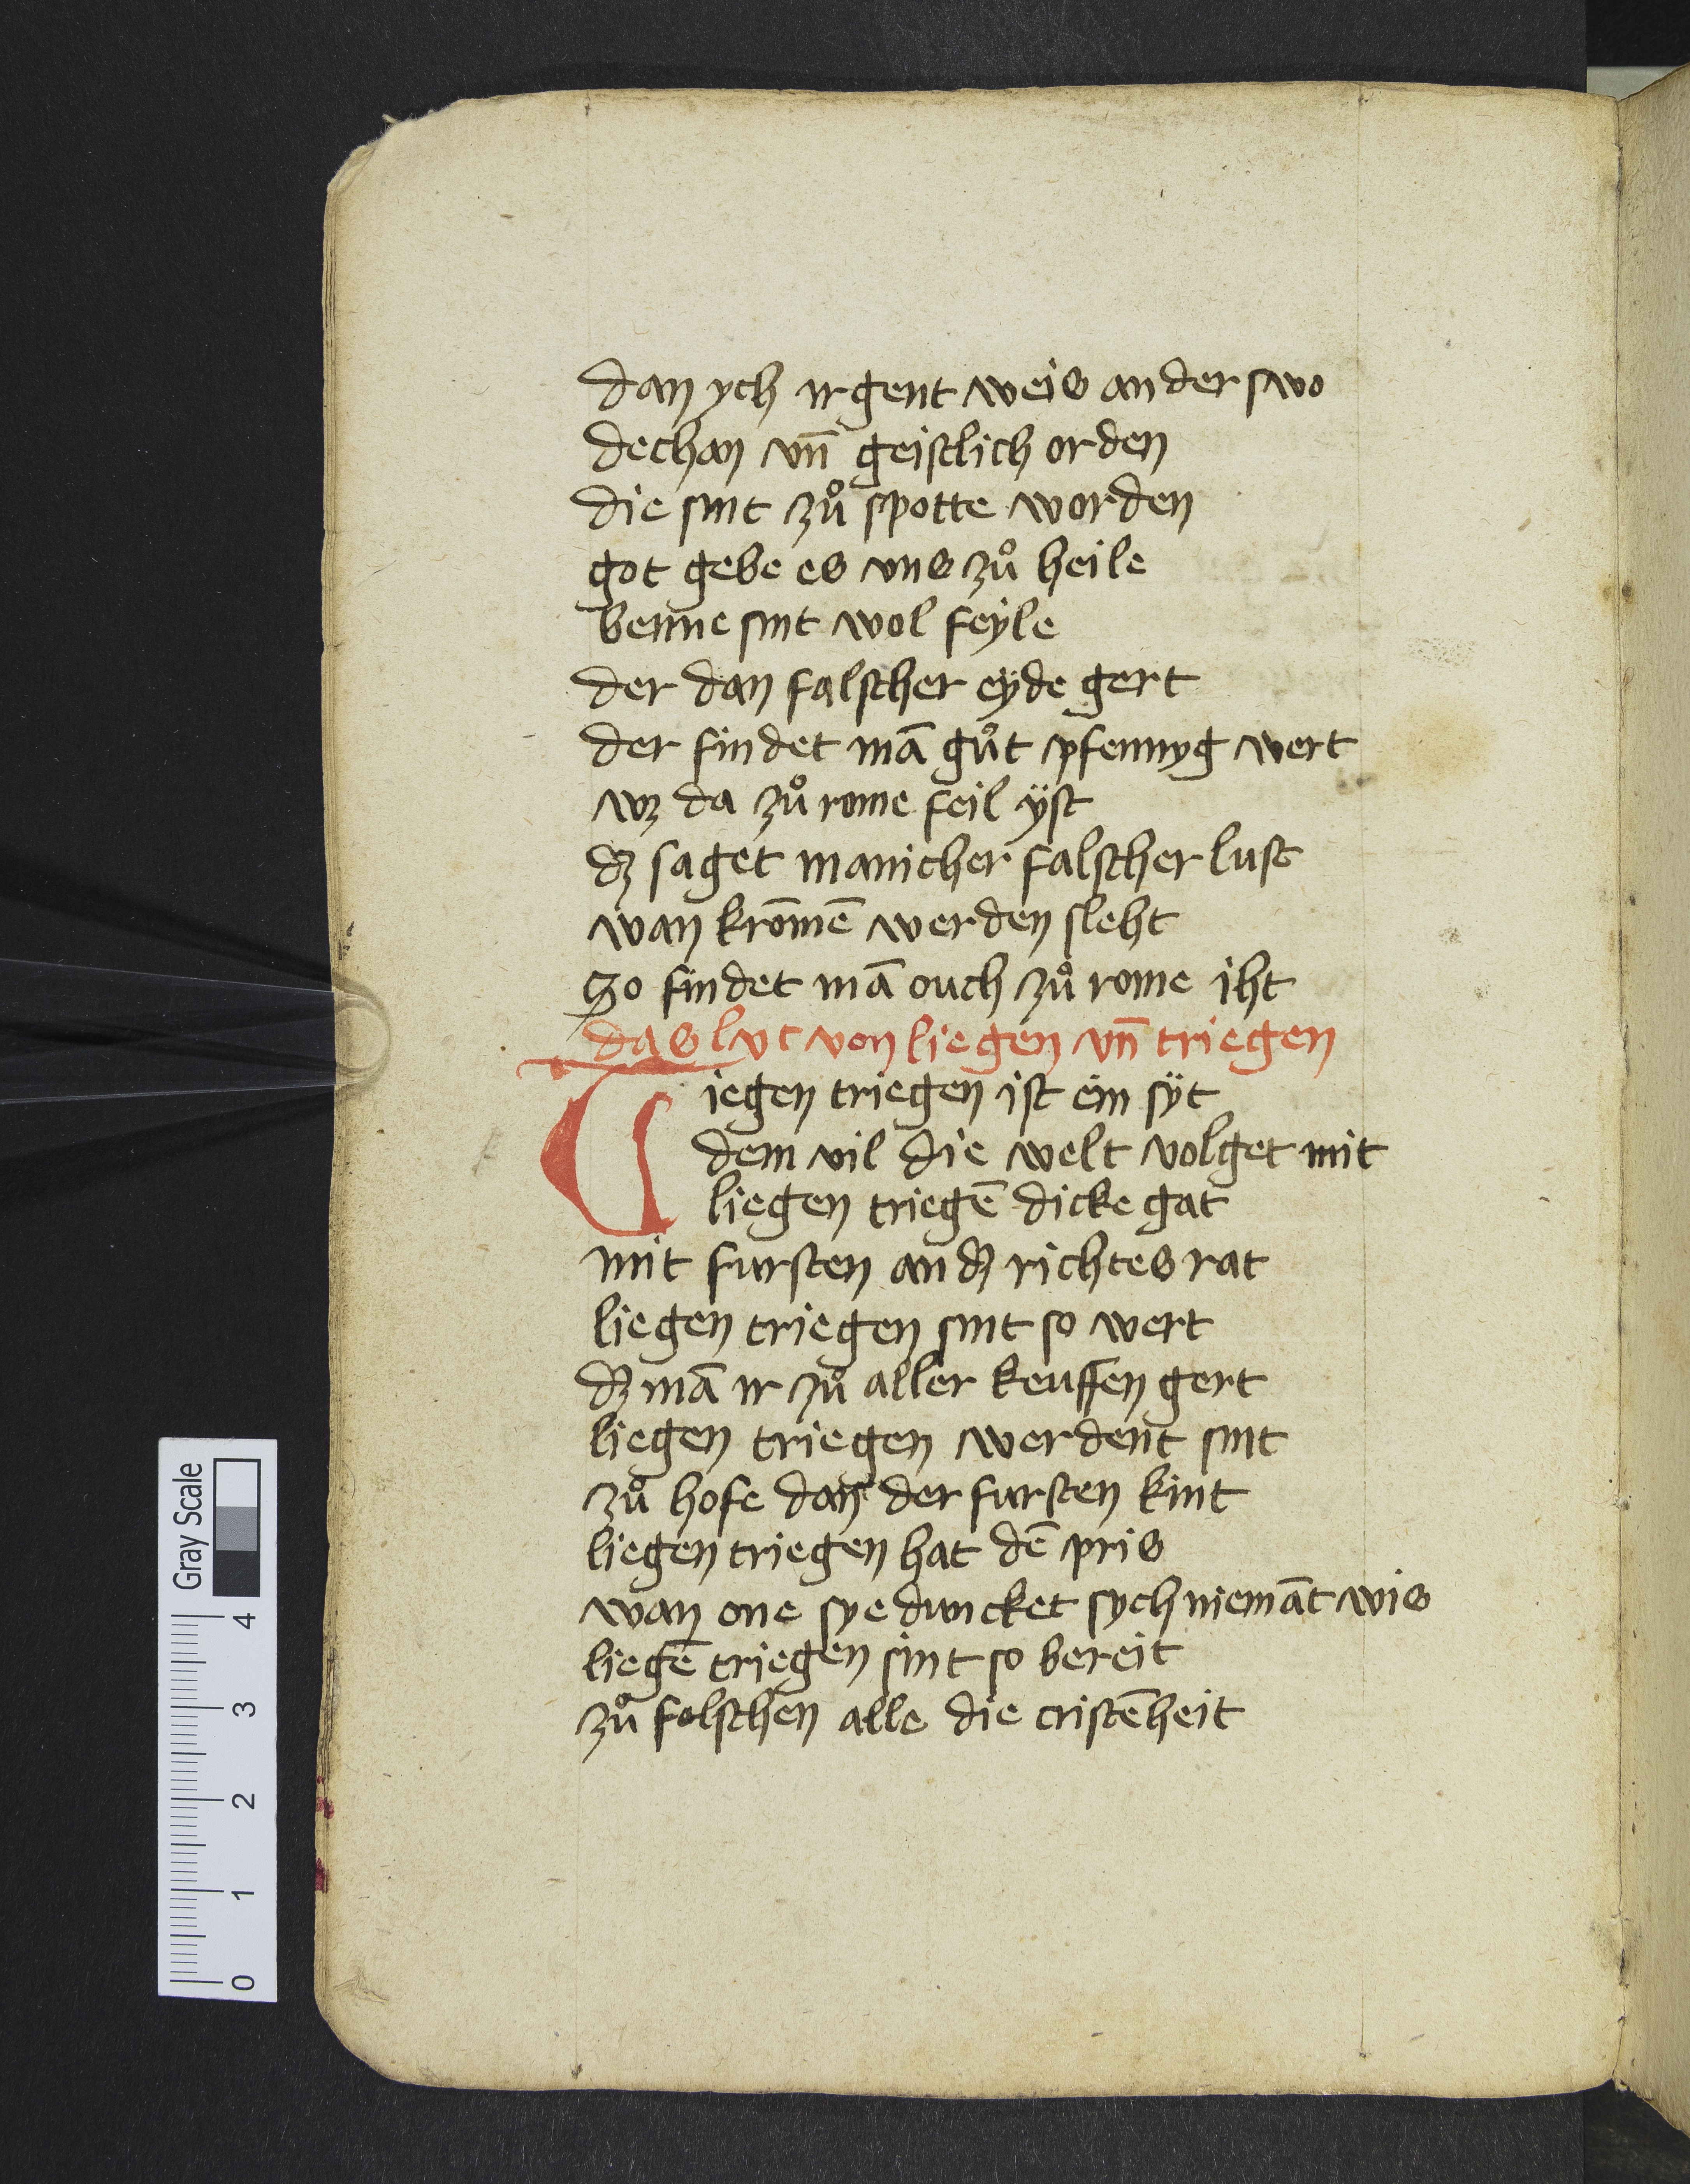 dan ych irgent weis anderswo
dechan vn̄ geistlich orden
die sint zuͦ spotte worden
got gebe es vns zuͦ heile
benne sint wol feyle
der dan falscher eyde gert
der findet mā guͦt pfennyg wert
wz da zuͦ rome feil ÿst
dz saget manicher falscher lust
wan krōmē werden sleht
So findet mā ouch zuͦ rome iht
das lut von liegen vn̄ triegen
iegen triegen ist ein sÿt
dem vil die welt volget mit
liegen triegē dicke gat
mit fursten an dz richtes rat
liegen triegen sint so wert
dz mā ir zuͦ aller keuffen gert
liegen triegen werdent sint
zuͦ hofe dan der fursten kint
liegen triegen hat dē pris
wan one sye duncket sych niemāt wis
liegē triegen sint so bereit
zuͦ folschen alle die cristēheit
Gray Scale
4
3
2
1
0